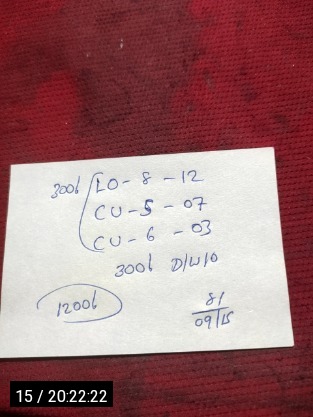 300b LO - 8 - 12
CU - 5 - 07
CU - 6 - 03
300b D/W/O
1200b
81
09/15
15 / 20:22:22